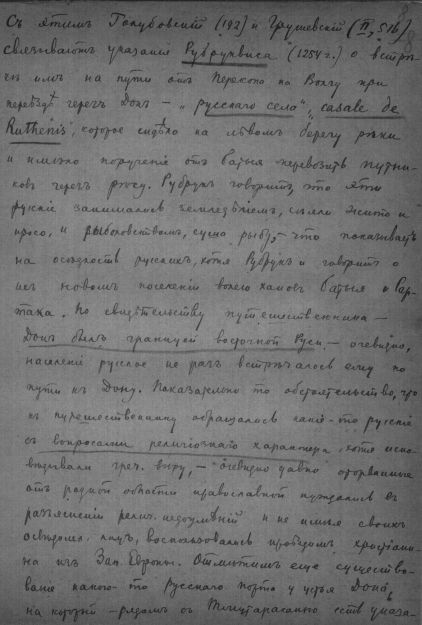 Съ этимъ Голубовскій (192) и Грушевскій (II, 516)
связываютъ указанія Рубруквиса (1254 г.) о встрѣ-
чѣ имъ на пути отъ Перекопа на Волгу при
переѣздѣ черезъ Донъ – „русскаго села", casale de
Ruthenis, которое сидѣло на лѣвомъ берегу рѣки
и имѣло порученіе отъ Батыя перевозить путни-
ковъ черезъ рѣку. Рубрукъ говоритъ, что эти
русскіе занимались земледѣліемъ, сѣяли жито и
просо, и рыболовствомъ, суша рыбу, – что показываетъ
на осѣдлость русскихъ, хотя Рубрукъ и говоритъ о
ихъ новомъ поселеніи волею хановъ Батыя и Сар-
така. По свидѣтельству путешественника –
Донъ былъ границей восточной Руси, – очевидно,
населеніе русское не разъ встрѣчалось ему по
пути къ Дону. Показательно то обстоятельство, что
къ путешественнику обращались какіе-то русскіе
съ вопросами религіознаго характера, хотя испо-
вѣдывали греч. вѣру, – очевидно давно оторванные
отъ родной области православной нуждались въ
разъясненіи религ. недоумѣній и не имѣя своихъ
освѣдомл. лицъ, воспользовались проѣздомъ христіани-
на изъ Зап. Европы. Отмѣтимъ еще существо-
ваніе какого-то Русскаго порта у устья Дона,
на который – рядомъ съ Тмутараканью есть указа-